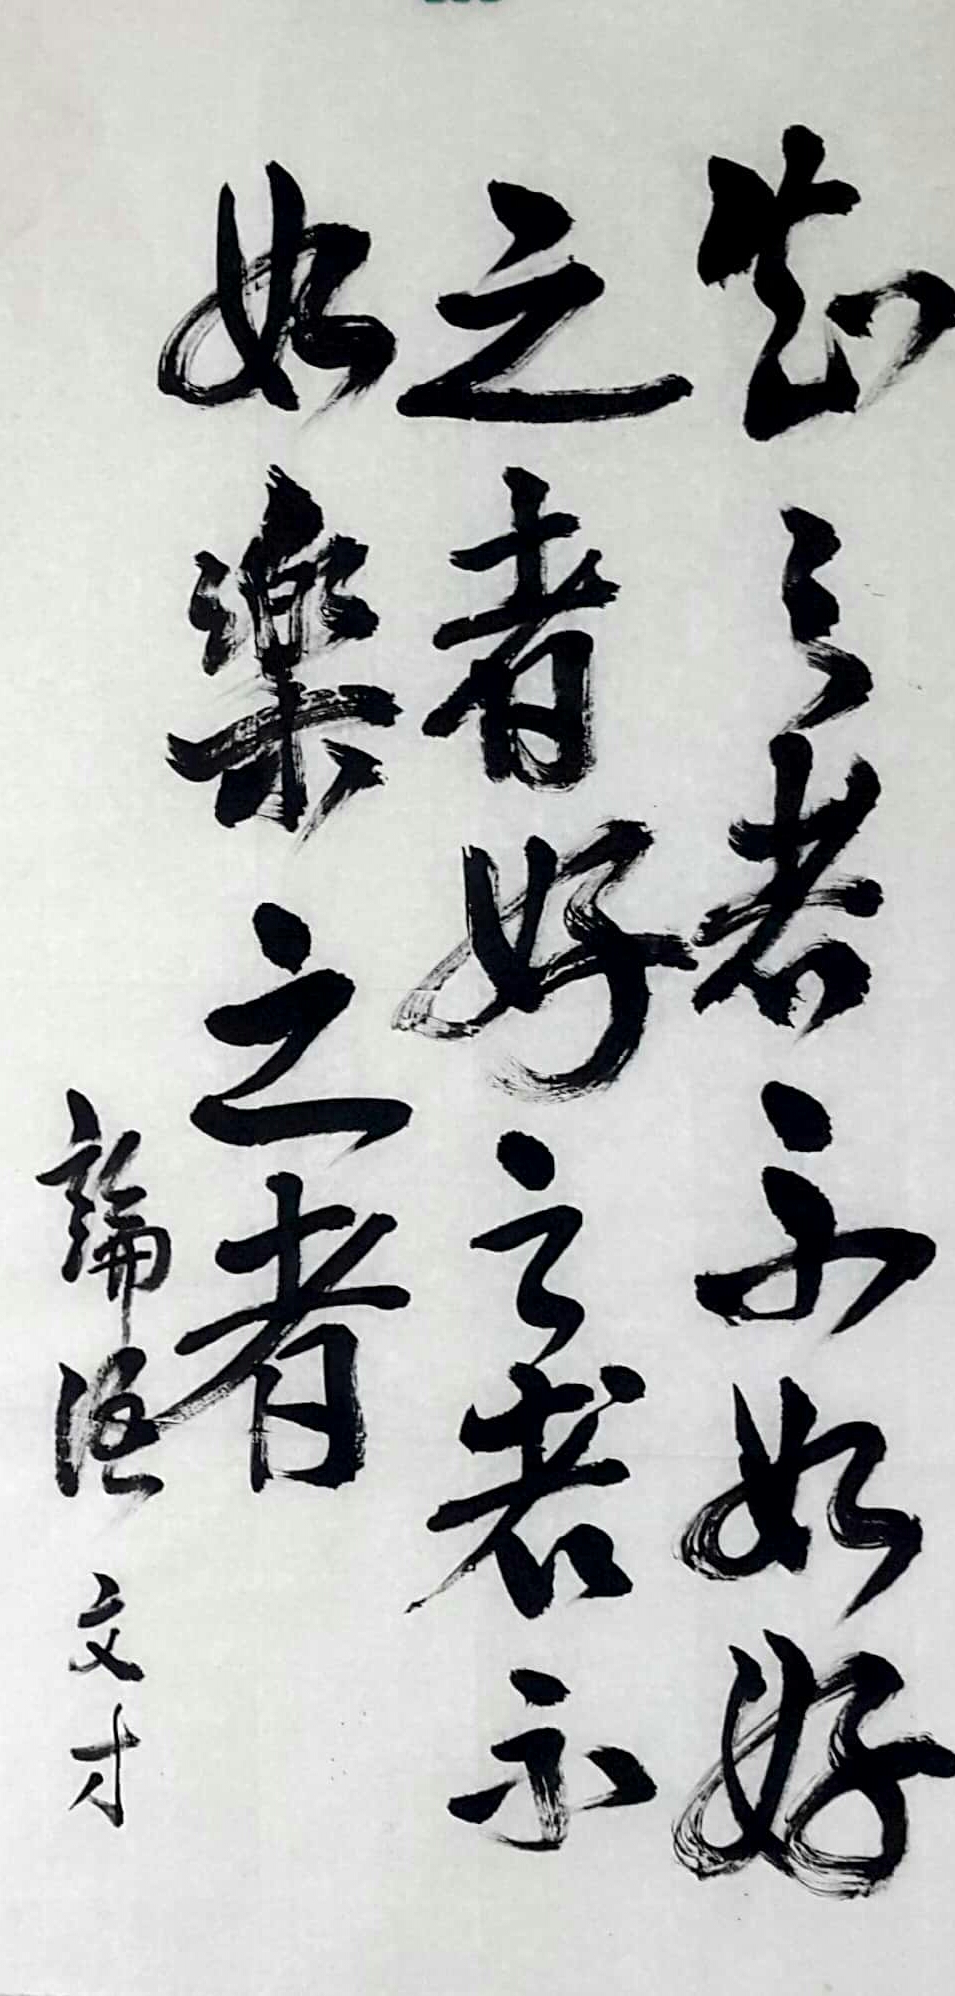 知之者不如好
之者好之者不
如樂之者
論語 文才